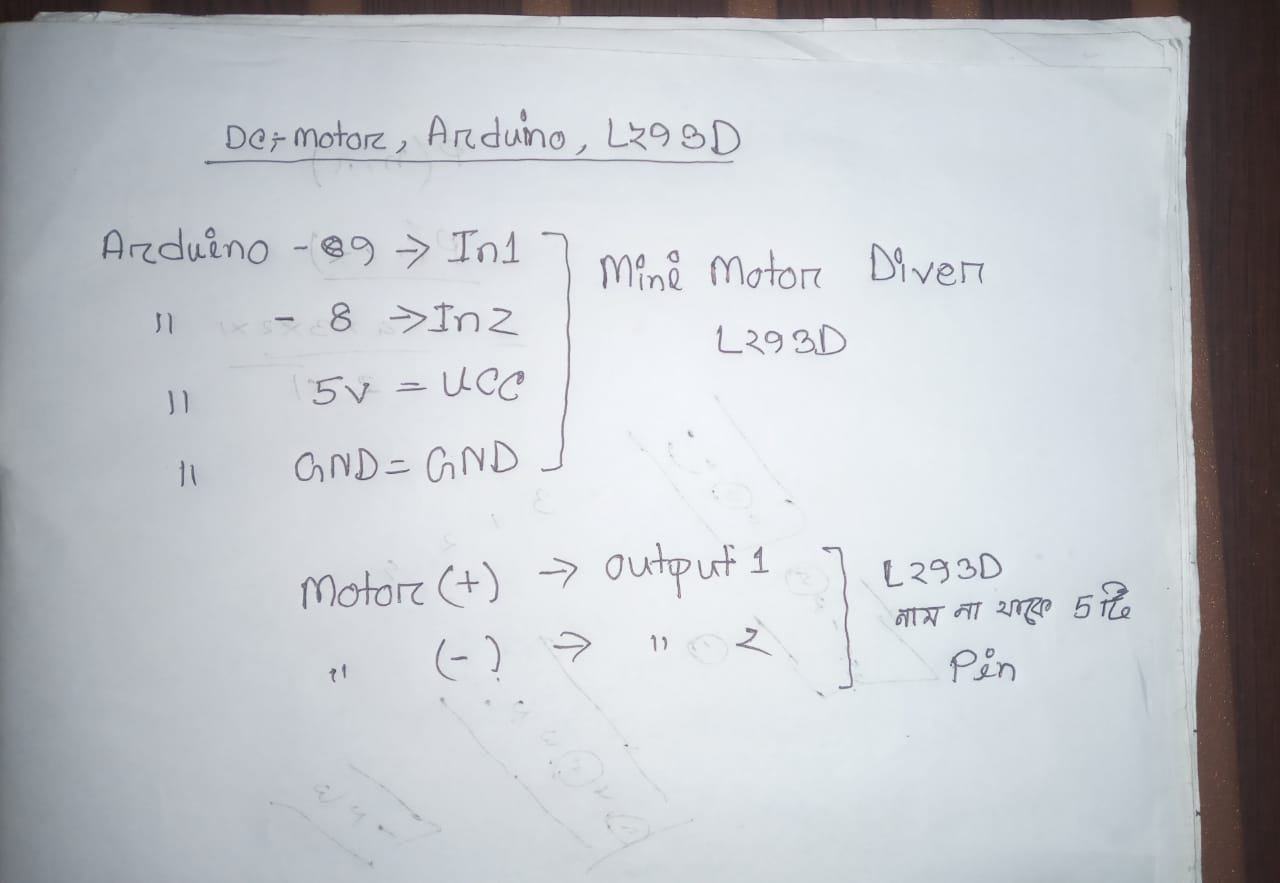 Dc, motor, Arduino, L293D
Arduino - 9 → In1
" - 8 → In2
" 5v = UCC
" GND = GND
Mini Motor Diver
L293D
Motor (+) → output 1
" (-) → " 2
L293D
নাম না থাকে 5 টি
Pin